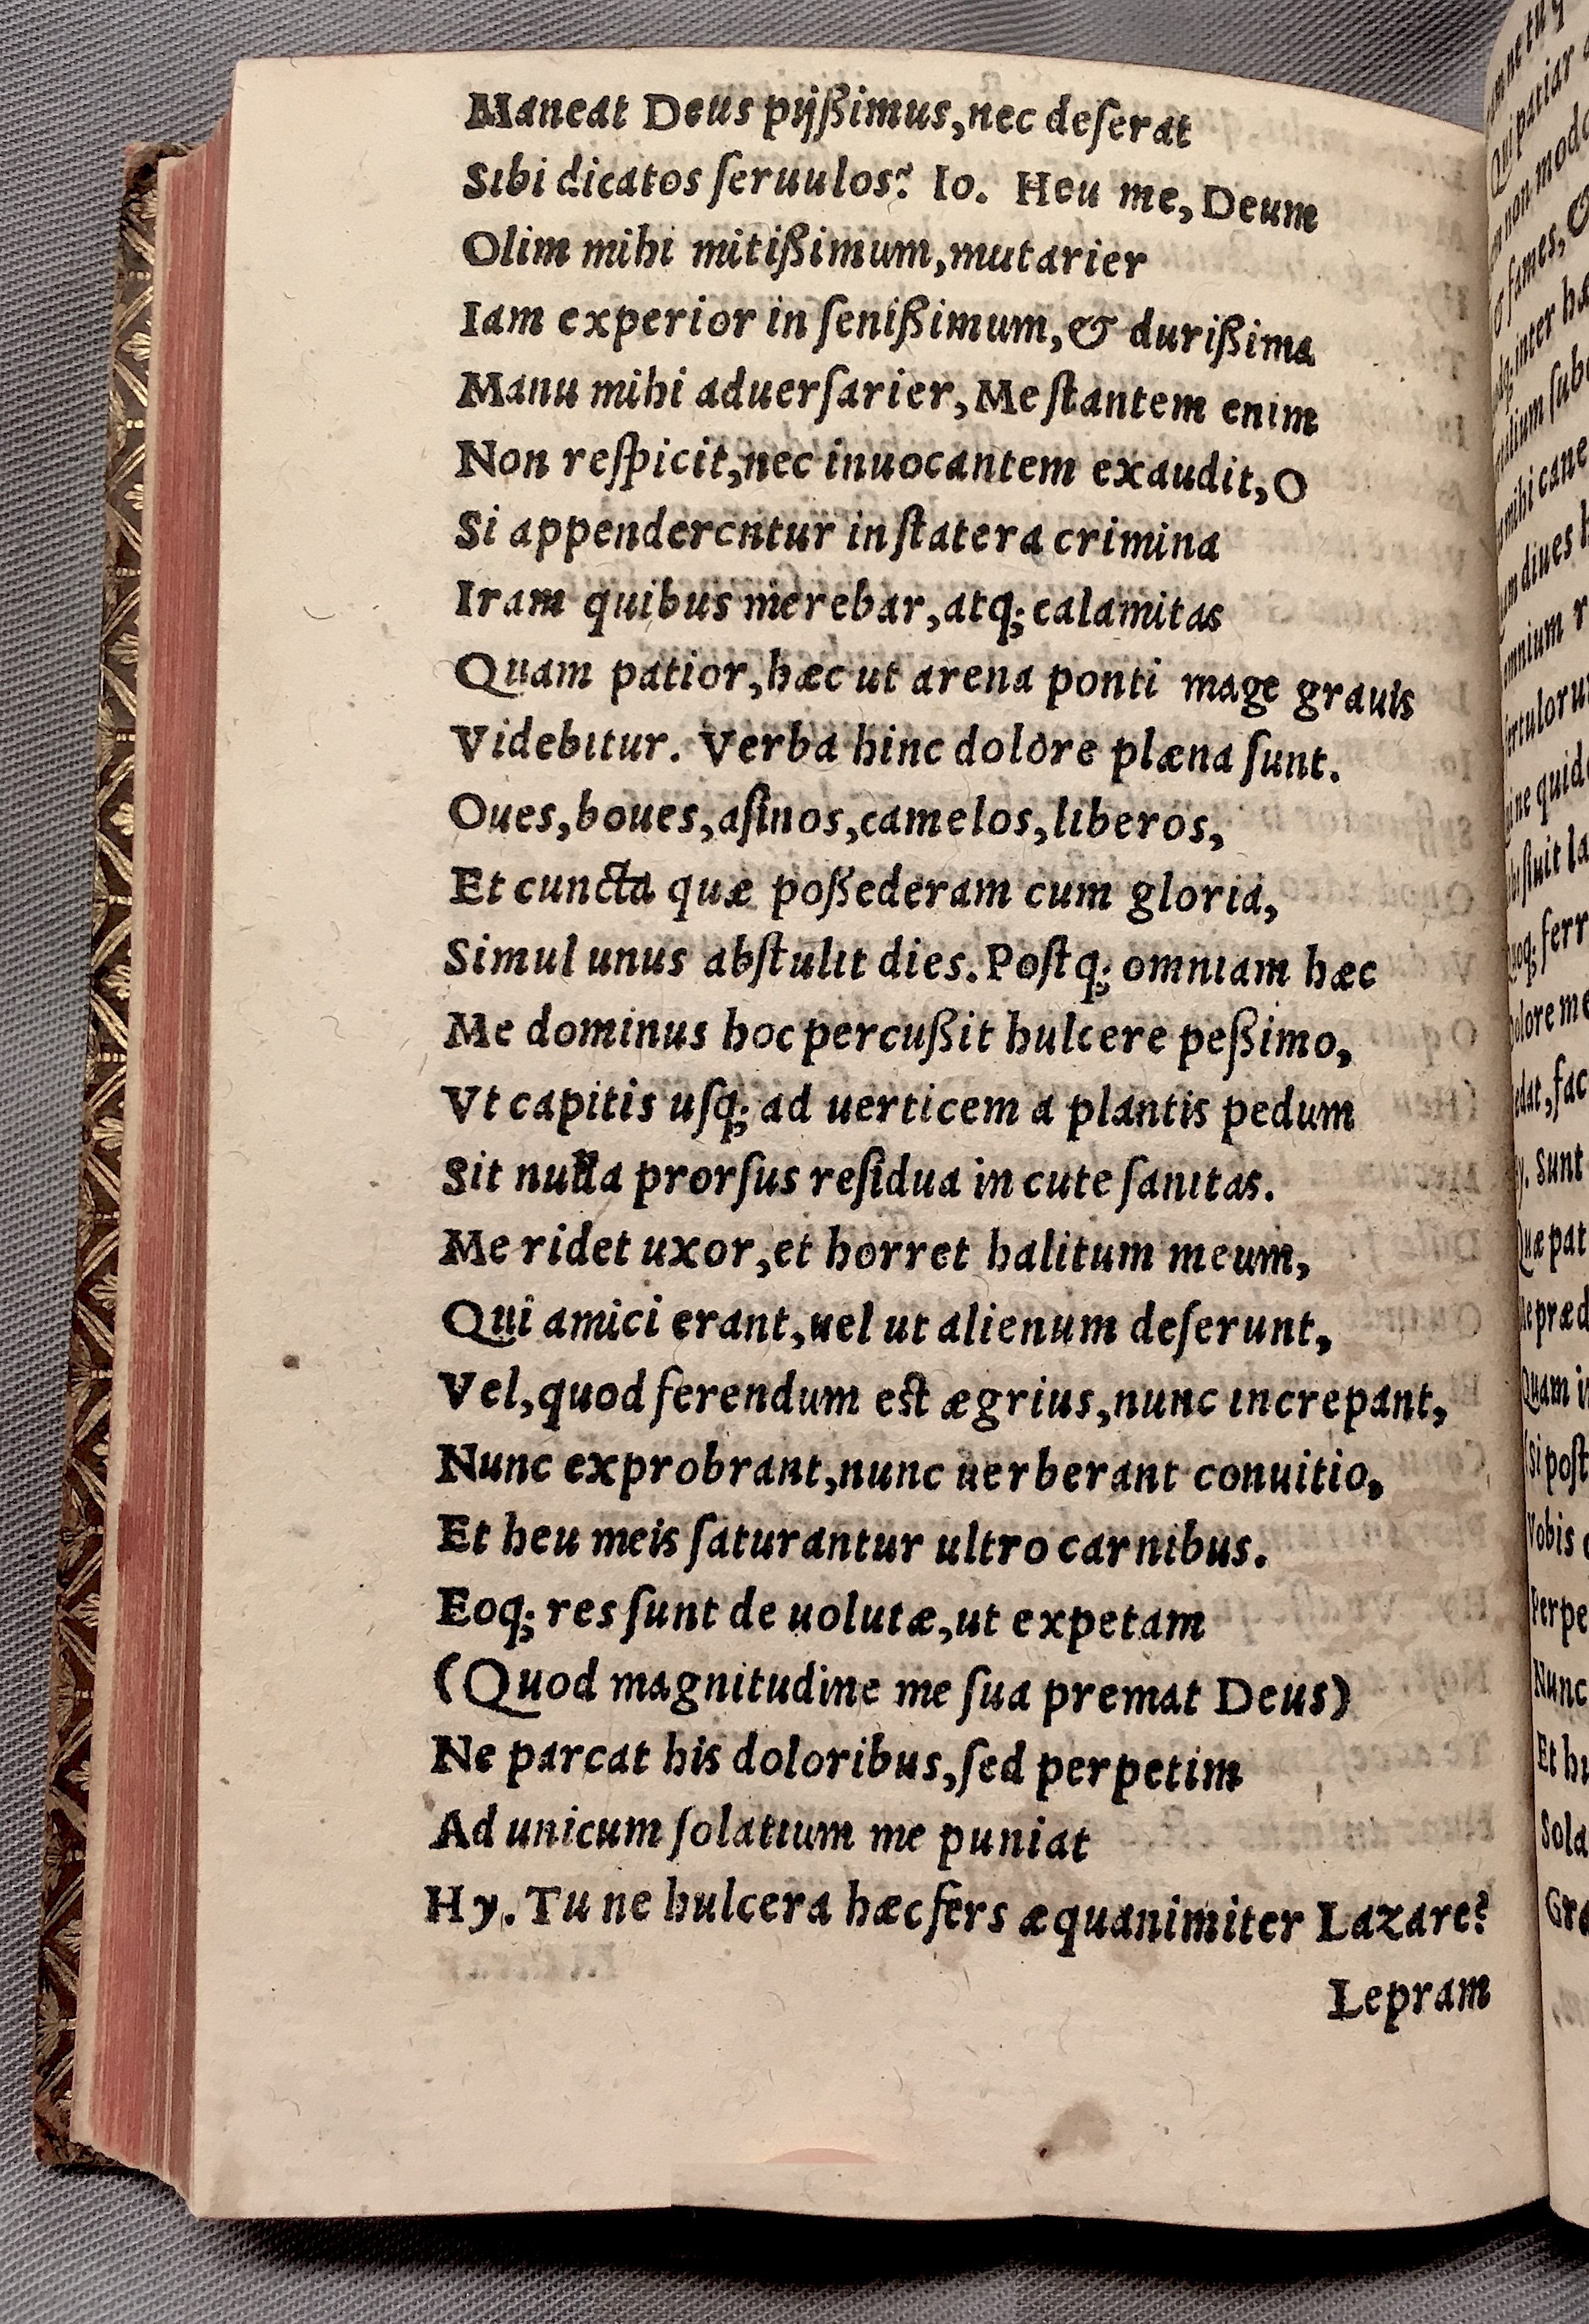 Maneat Deus pijßimus,nec deſerat
Sibi dicatos ſeruulos? Io. Heu me, Deum
Olim mihi mitißimum,mutarier
Iam experior in ſenißimum,& durißima
Manu mihi aduerſarier,Me ſtantem enim
Non reſpicit,nec inuocantem exaudit,O
Si appenderentur in ſtatera crimina
Iram quibus merebar,atq; calamitas
Quam patior,hæc ut arena ponti mage grauis
Videbitur. Verba hinc dolore plæna ſunt.
Oues,boues,aſinos,camelos,liberos,
Et cuncta quæ poßederam cum gloria,
Simul unus abſtulit dies.Poſtq; omniam hæc
Me dominus hoc percußit hulcere peßimo,
Vt capitis uſq; ad uerticem a plantis pedum
Sit nulla prorſus reſidua in cute ſanitas.
Me ridet uxor,et horret halitum meum,
Qui amici erant,uel ut alienum deſerunt,
Vel,quod ferendum eſt ægrius,nunc increpant,
Nunc exprobrant,nunc uerberant conuitio,
Et heu meis ſaturantur ultro carnibus.
Eoq; res ſunt de uolutæ,ut expetam
(Quod magnitudine me ſua premat Deus)
Ne parcat his doloribus,ſed perpetim
Ad unicum ſolatium me puniat
Hy. Tu ne hulcera hæc fers æquanimiter Lazare?
Lepram